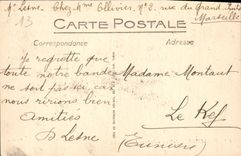 Mr Lesne. Chez Mme Ollivier. No 2. rue du Grand
Marseille
13
CARTE POSTALE
Correspondance
Adresse
Je regrette que
toute notre bande
ne soit pas ici car
nous ririons bien
Amities
D Lesne
Madame Montaut
Le Kef
(Tunisie)